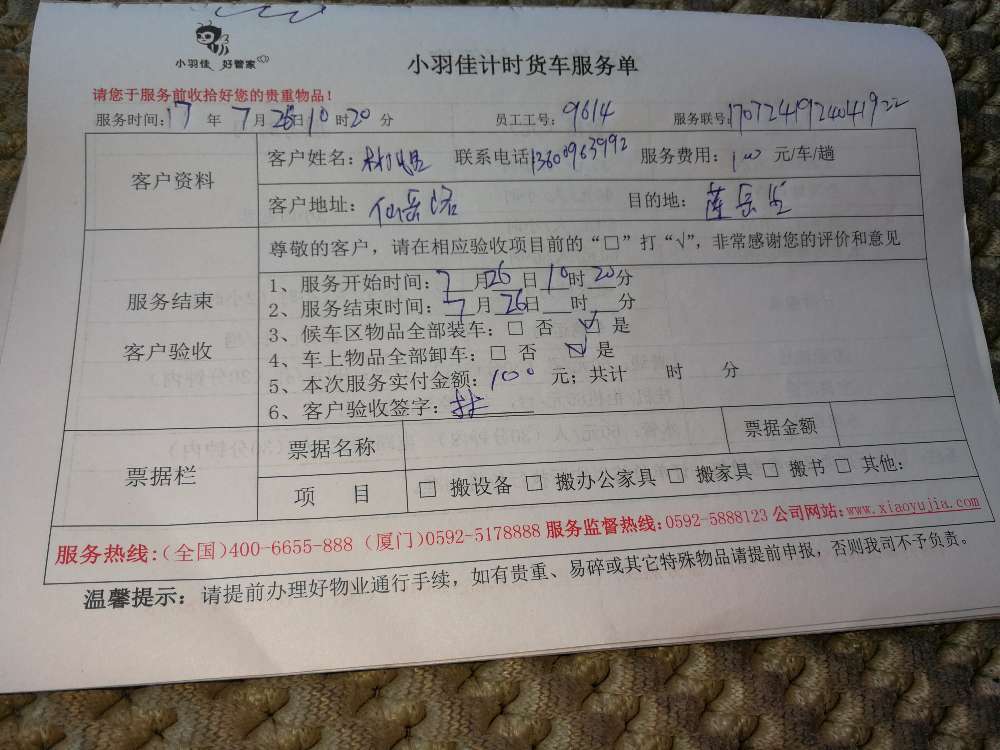 小羽佳 好管家
小羽佳计时货车服务单
请您于服务前收拾好您的贵重物品!
服务时间:17 年 7 月 26 日 10 时 20 分 员工工号: 9614 服务联号:
客户资料
客户姓名: 联系电话 服务费用: 100 元/车/趟
客户地址: 仙岳路 目的地: 莲岳
尊敬的客户，请在相应验收项目前的“□”打“√”，非常感谢您的评价和意见
服务结束
客户验收
1、服务开始时间: 7 月 26 日 10 时 20 分
2、服务结束时间: 7 月 26 日 时 分
3、候车区物品全部装车: □ 否 ☑ 是
4、车上物品全部卸车: □ 否 ☑ 是
5、本次服务实付金额: 100 元; 共计 时 分
6、客户验收签字:
票据栏
票据名称 票据金额
项 目 □ 搬设备 □ 搬办公家具 □ 搬家具 □ 搬书 □ 其他:
服务热线:(全国)400-6655-888 (厦门)0592-5178888 服务监督热线:0592-5888123 公司网站:www.xiaoyujia.com
温馨提示: 请提前办理好物业通行手续，如有贵重、易碎或其它特殊物品请提前申报，否则我司不予负责。